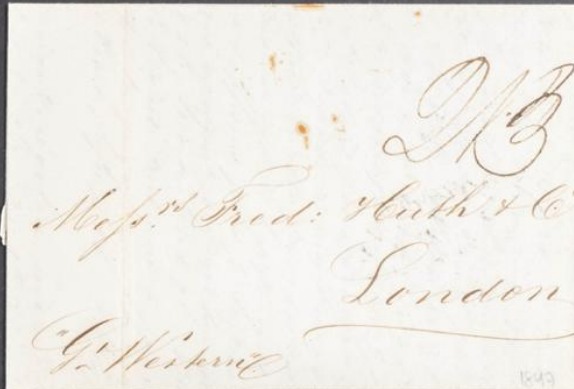 Mess.rs Fred: Huth & C
London
"Gt. Western"
1842